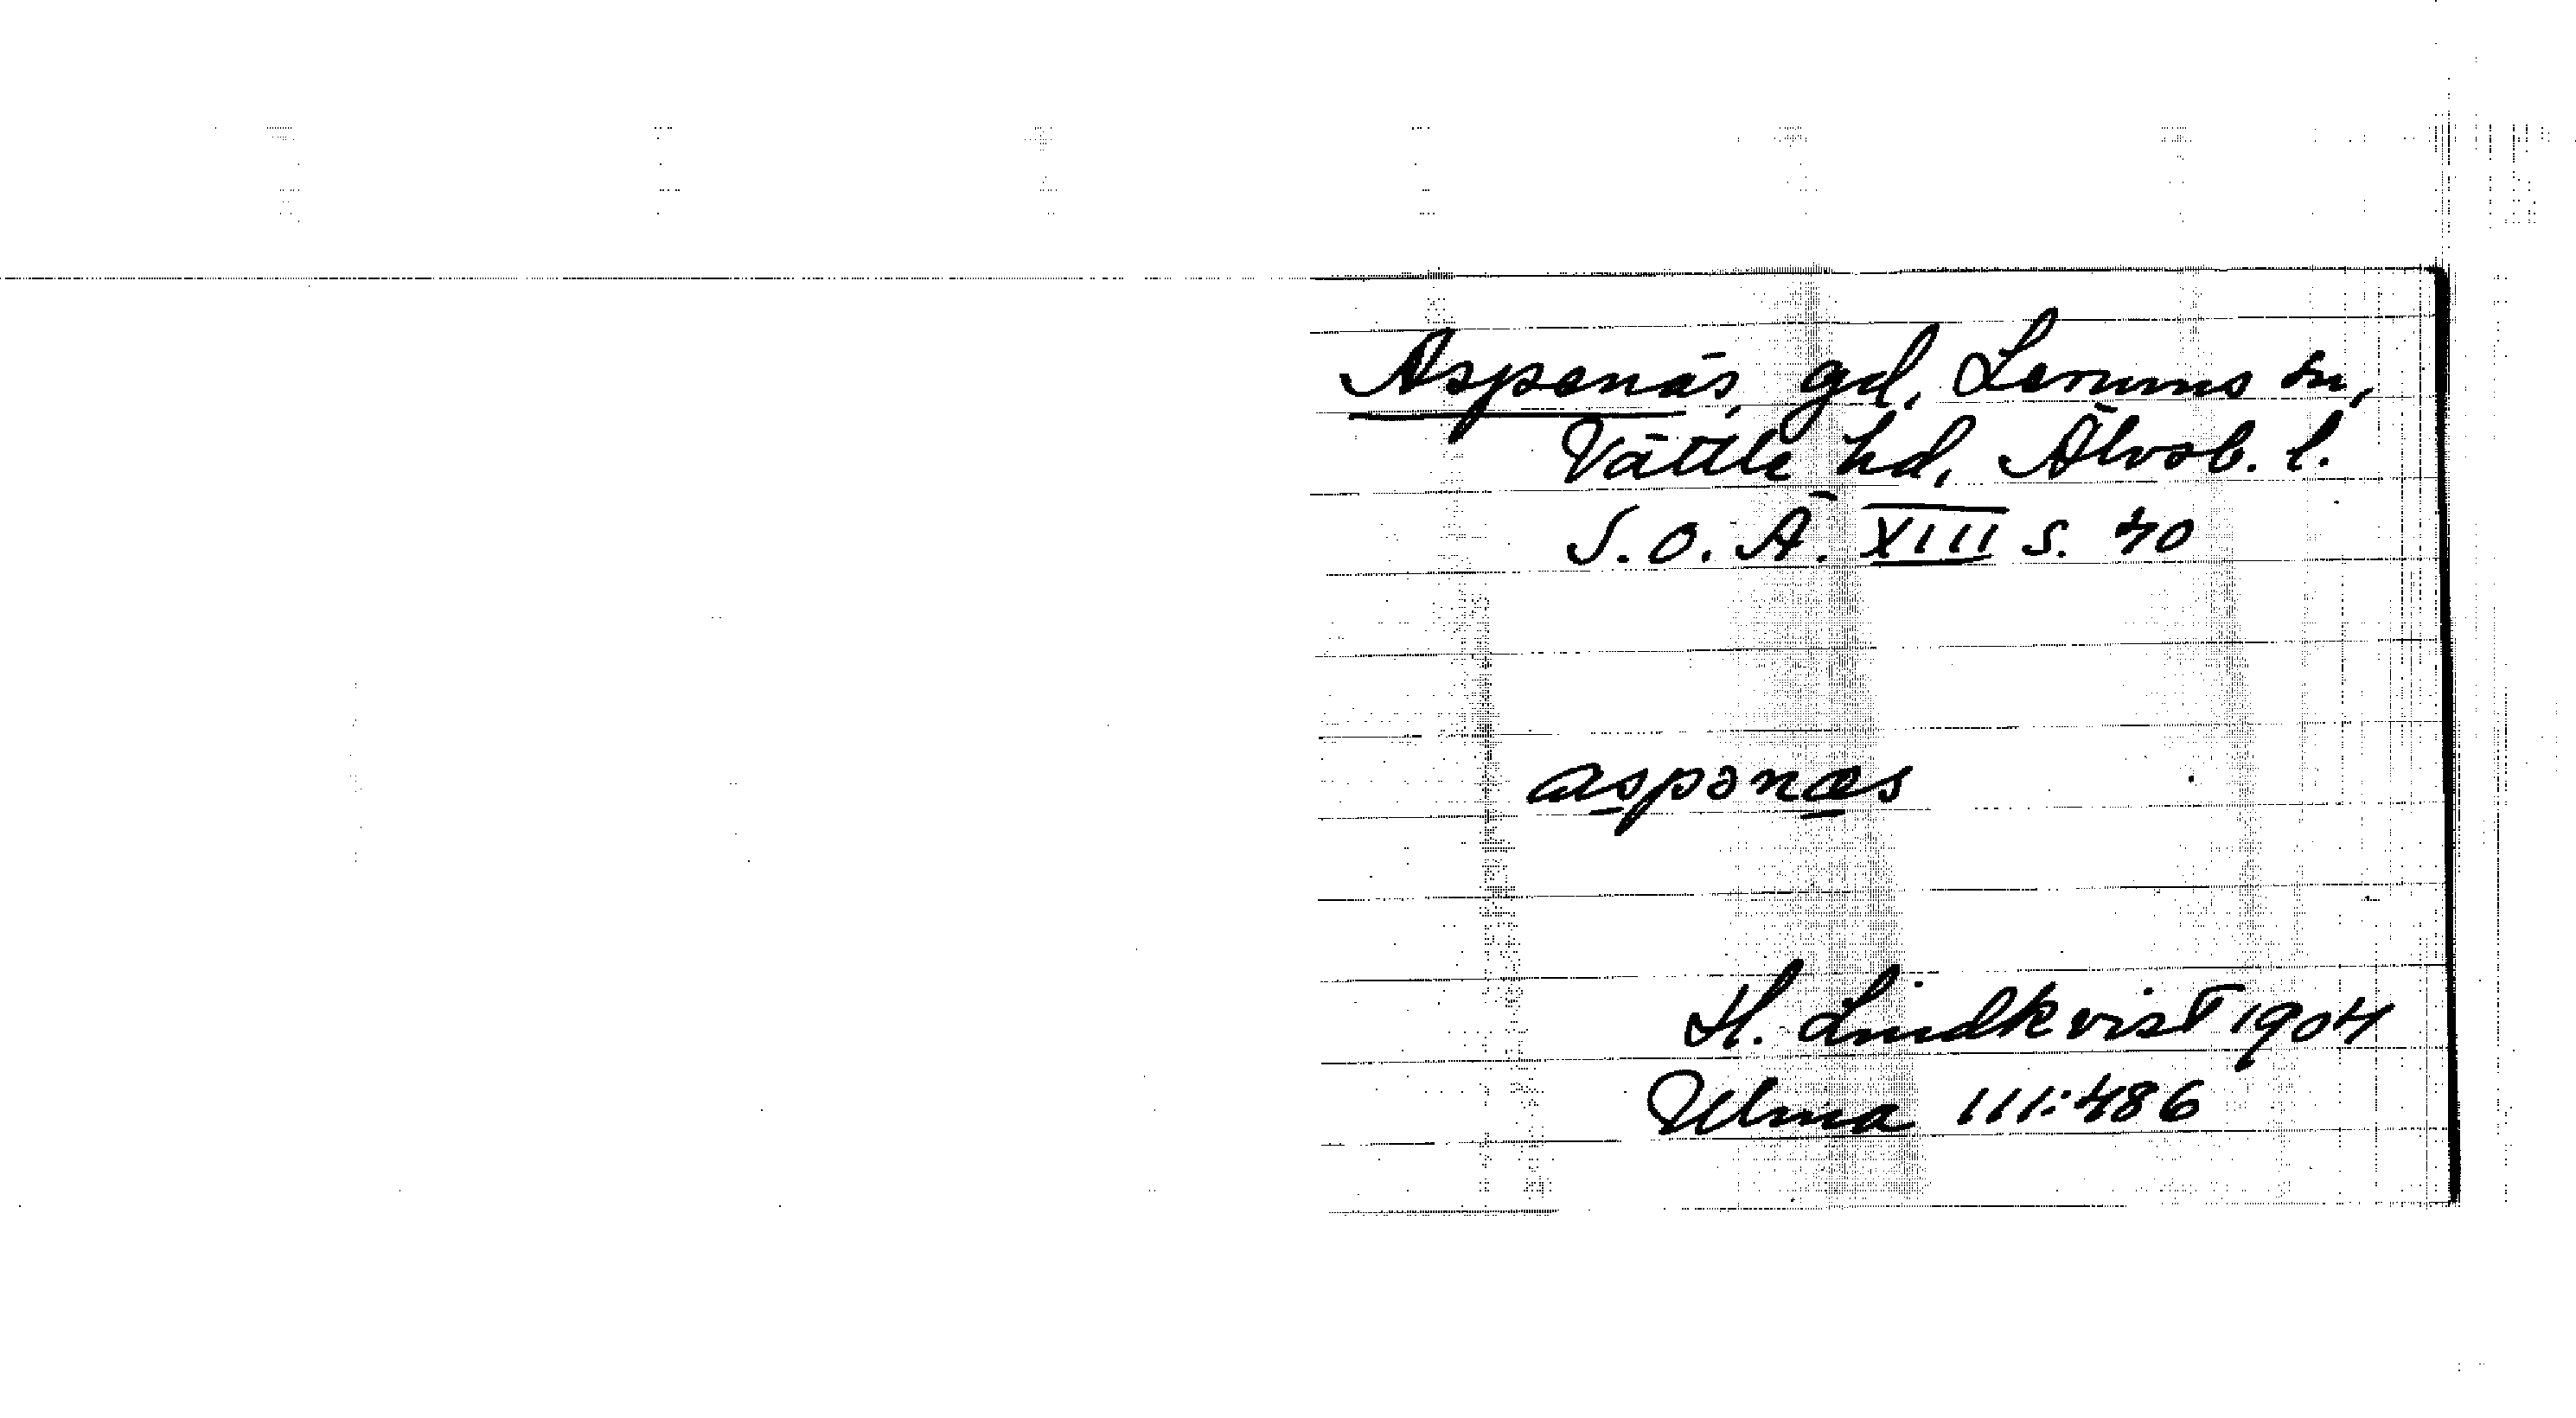 Aspenäs, gd, Lerums sn,
Vättle hd, Älvsb. l.
S.O.Ä. XIII s. 40
aspənæs
H. Lindkvist 1904
Ulma 111:486